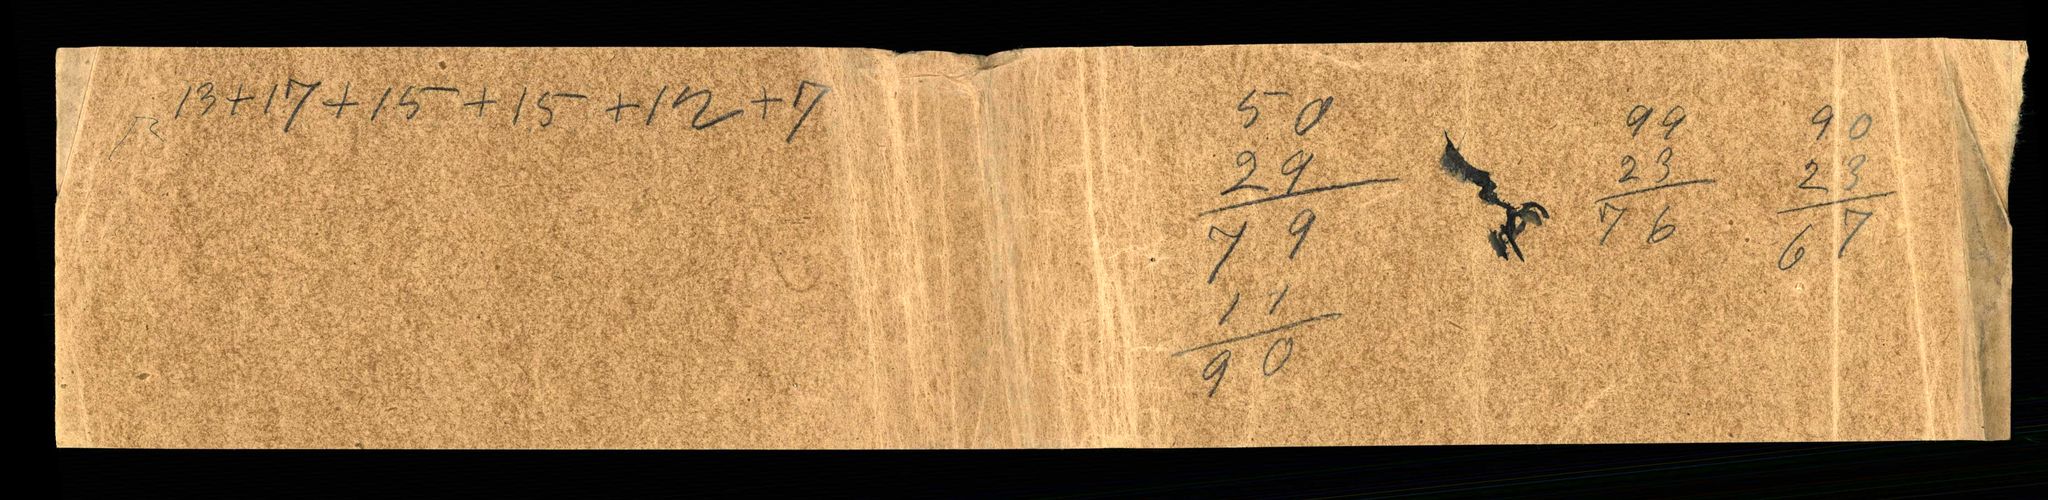 13+17+15+15+12+7
50
29
79
11
90
99
23
76
90
23
67